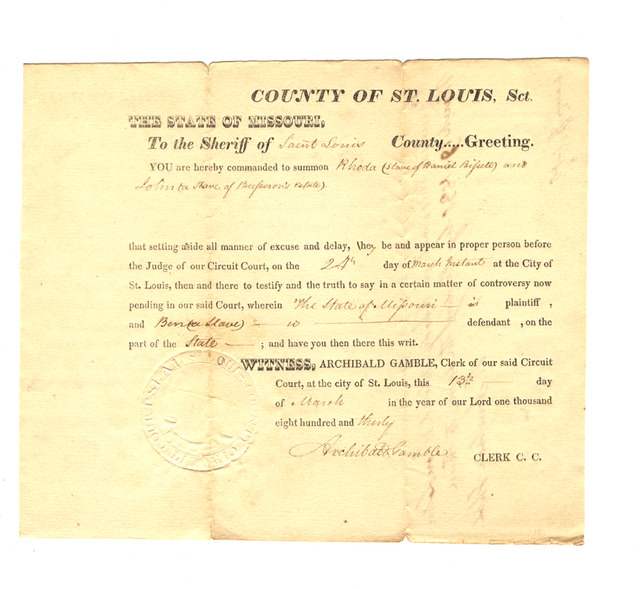 COUNTY OF ST. LOUIS, Sct.
THE STATE OF MISSOURI,
To the Sheriff of Saint Louis County.....Greeting.
YOU are hereby commanded to summon Rhoda (slave of Daniel Bissell) and
John (a Slave of Estate)
that setting aside all manner of excuse and delay, they be and appear in proper person before
the Judge of our Circuit Court, on the 24th day of March Instant at the City of
St. Louis, then and there to testify and the truth to say in a certain matter of controversy now
pending in our said Court, wherein The State of Missouri is plaintiff ,
and Ben (a Slave) is defendant , on the
part of the State ; and have you then there this writ.
WITNESS, ARCHIBALD GAMBLE, Clerk of our said Circuit
Court, at the city of St. Louis, this 13th day
of March in the year of our Lord one thousand
eight hundred and thirty
Archibald Gamble CLERK C. C.